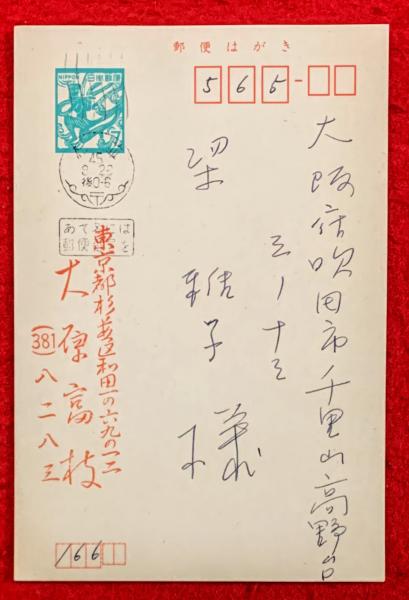 郵便はがき
565
大阪府吹田市千里山高野台
三ノ十三
梁雅子様
NIPPON
日本郵便
7
45
8 29
後0-6
あて名には
郵便番号を
東京都杉並区和田一の六九の一三
大原富枝
(381)八二八三
166